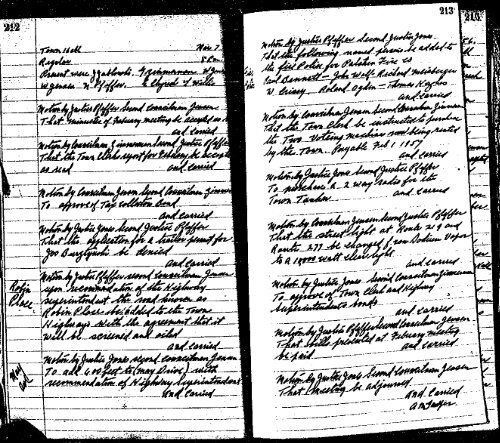 212
Town Hall Mar 7
Regular 8 P.m.
Present were
Motion by Justice Pfeffer second Councilman Jensen
That minutes of February meeting be accepted as
and carried
Motion by Councilman Zimmerman second Justice Pfeffer
That the Town Clerks report for February be accepted
as read and carried
Motion by Councilman Jensen second Councilman Zimmer
To approve of Tax collectors Bond
and carried
Motion by Justice Jones second Justice Pfeffer
That the application for a trailer permit for
Joe be denied
and carried
Robin
Place
Motion by Justice Pfeffer second Councilman Jensen
upon recommendation of the Highway
superintendent the road known as
Robin Place be added to the Town
Highways with the agreement that it
will be screened and oiled
and carried
Motion by Justice Jones second Councilman Jensen
To add 600 feet to (May Drive) with
recommendation of Highway Superintendent
and carried
213
Motion by Justice Pfeffer second Justice Jones
That the following named persons be added to
the fire Police for
Bennett - John Wolf -
- Roland Ogden - Thomas
and carried
Motion by Councilman Jensen second Councilman Zimmerman
That the Town Clerk be instructed to purchase
the Two voting machines now being rented
by the Town. Payable Feb 1 1957
and carried
Motion by Justice Jones second Justice Pfeffer
To purchase a 2 way radio for the
Town
and carried
Motion by Councilman Jensen second Justice Pfeffer
That the street light at Route 219 and
Route 277 be changed from Sodium Vapor
to a 10000 watt clear light
and carried
Motion by Justice Jones second Councilman Zimmerman
To approve of Town Clerk and Highway
Superintendents bonds
and carried
Motion by Justice Pfeffer second Councilman Jensen
That bills presented at February meeting
be paid and carried
Motion by Justice Jones second Councilman Jensen
That meeting be adjourned
and carried
215